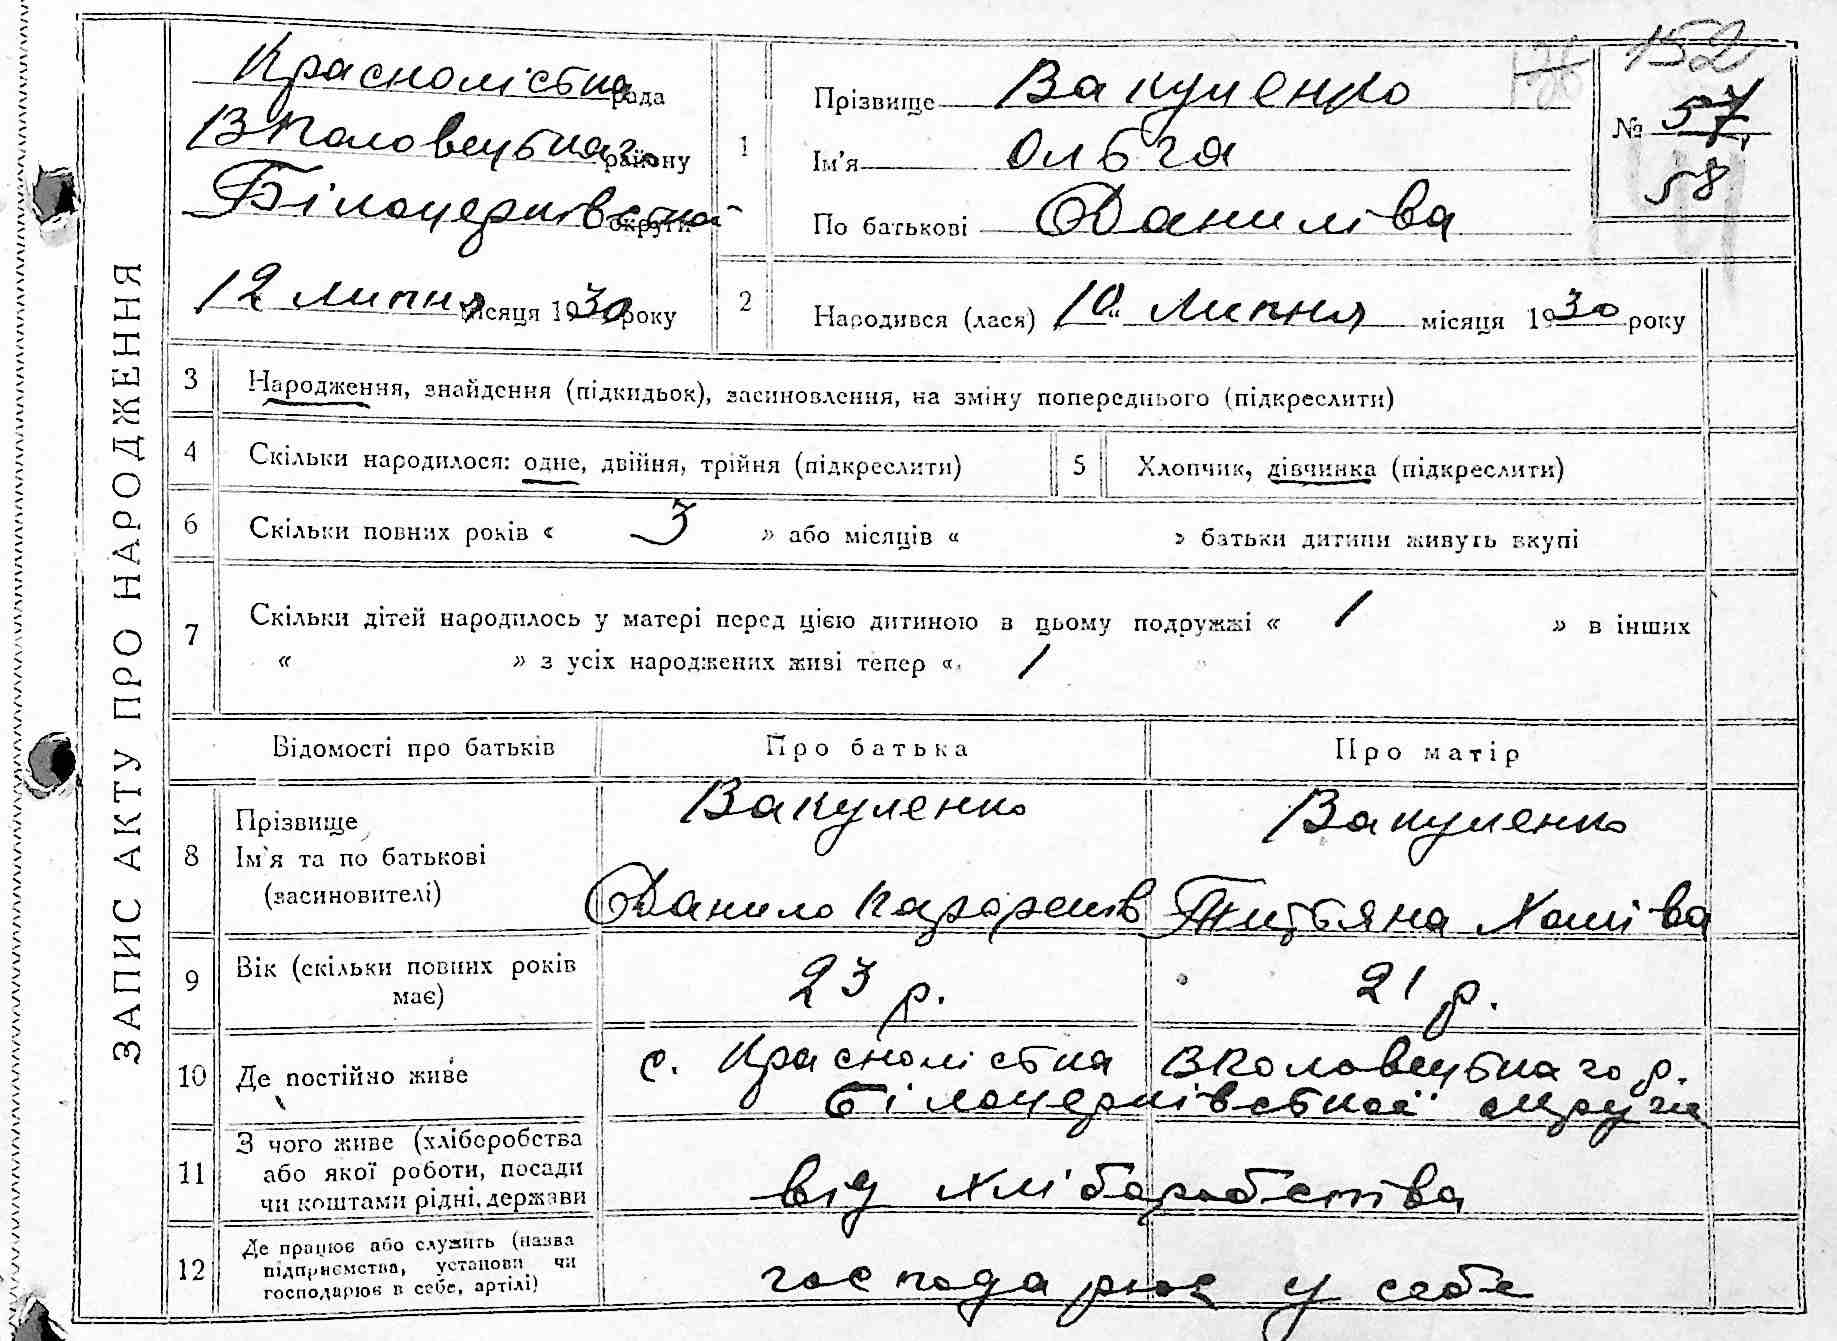 ЗАПИС АКТУ ПРО НАРОДЖЕННЯ
Краснолістка рада
Вполовецького району
Білоцерківської округи
12 липня місяця 1930 року
1
Прізвище Вакуленко
Ім'я Ольга
По батькові Данилівa
152
№ 57
58
2
Народився (лася) 10 липня місяця 1930 року
3 Народження, знайдення (підкидьок), засиновлення, на зміну попереднього (підкреслити)
4 Скільки народилося: одне, двійня, трійня (підкреслити)
5 Хлопчик, дівчинка (підкреслити)
6 Скільки повних років « 3 » або місяців « » батьки дитини живуть вкупі
7 Скільки дітей народилось у матері перед цією дитиною в цьому подружжі « 1 » в інших
« » з усіх народжених живі тепер « 1
Відомості про батьків Про батька Про матір
8 Прізвище
Ім'я та по батькові
(засиновителі)
Вакуленко
Данило
Вакуленко
Титьяна Хомівa
9 Вік (скільки повних років
має)
23 р.
21 р.
10 Де постійно живе
с. Краснолістка Вполовецького р.
Білоцерківської округи
11 З чого живе (хліборобства
або якої роботи, посади
чи коштами рідні, держави
від хліборобства
12 Де працює або служить (назва
підприємства, установи чи
господарює в себе, артілі)
господарює у себе